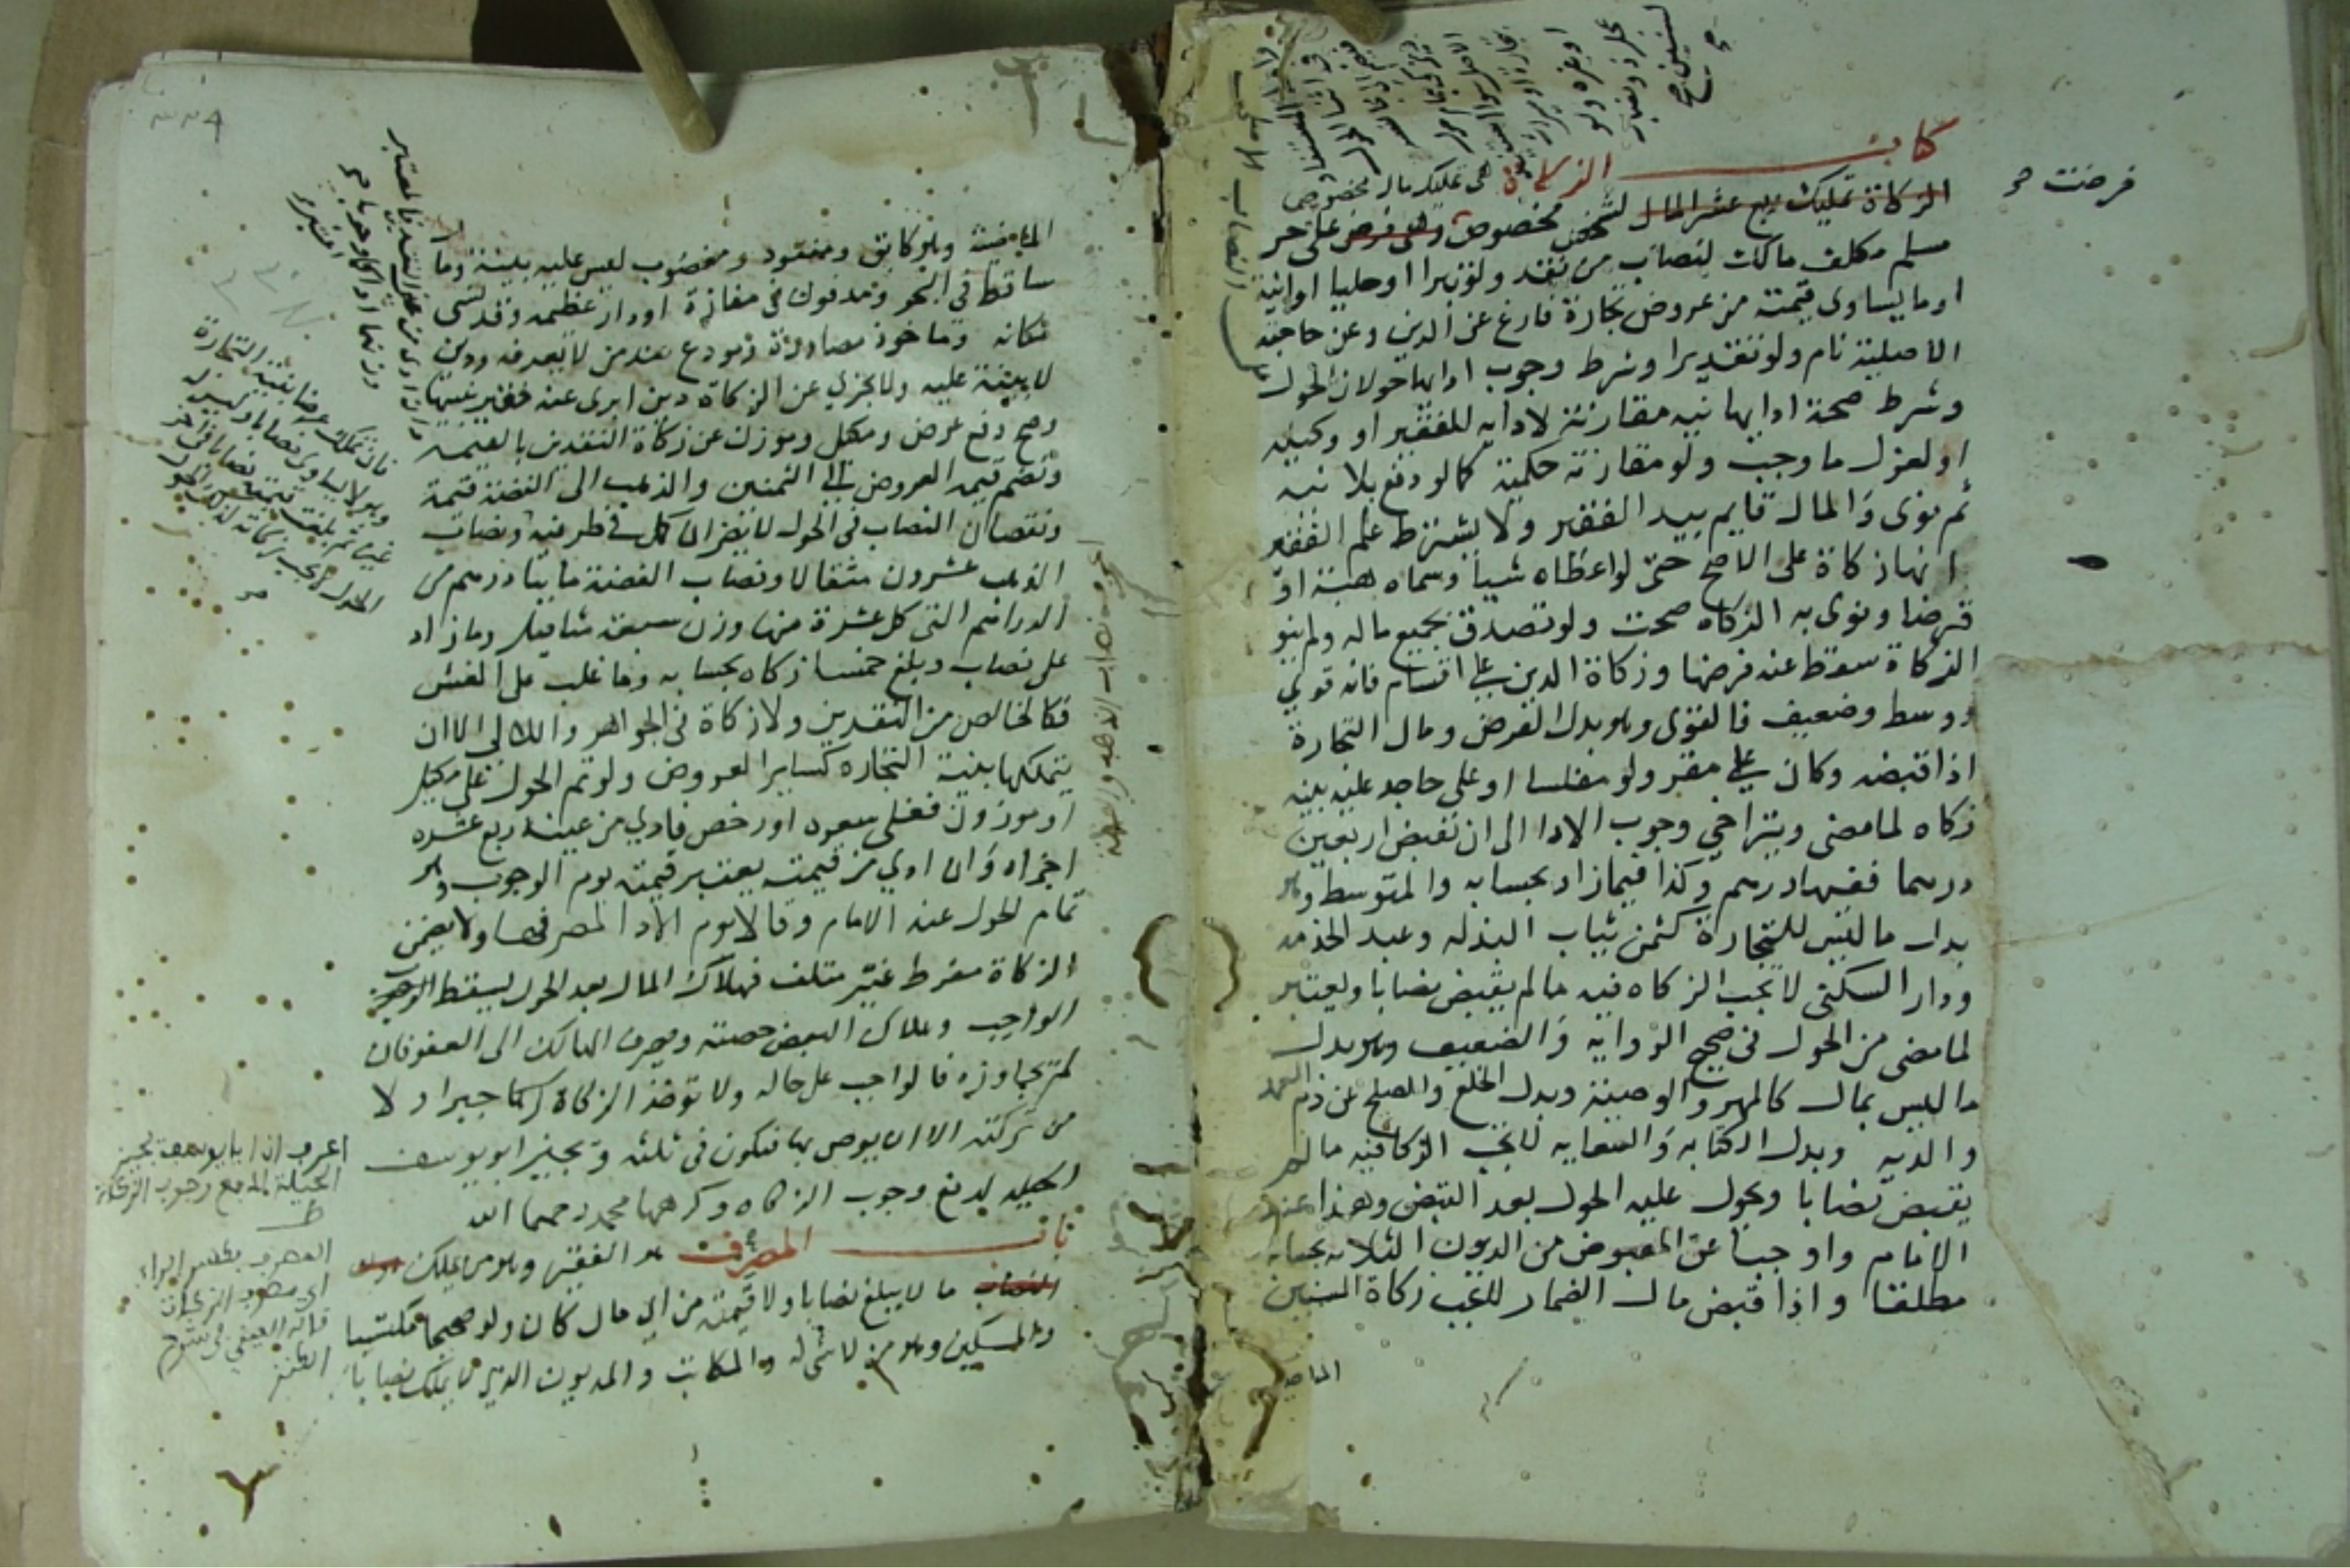 كتاب الزكاة هي تمليك مال مخصوص
الزكاة تمليك ربع عشر المال لشخص مخصوص وهي فرض على حر
فرضت صح
مسلم مكلف مالك لنصاب من نقد ولو تبرا او حليا او انية
او ما يساوى قيمته من عروض تجارة فارغ عن الدين وعن حاجته
الاصلية نام ولو تقديرا وشرط وجوب ادايها حولان الحول
وشرط صحة ادايها نيه مقارنة لادايه للفقير او وكيله
او لعزل ما وجب ولو مقارنه حكمية كما لو دفع بلا نيه
ثم نوى والمال قايم بيد الفقير ولا يشترط علم الفقير
انها زكاة على الاصح حتى لو اعطاه شيا وسماه هبة او
قرضا ونوى به الزكاه صحت ولو تصدق بجميع ماله ولم ينو
الزكاة سقط عنه فرضها وزكاة الدين على اقسام فانه قوي
ووسط وضعيف فالقوى وهو بدل القرض ومال التجارة
اذا قبضه وكان على مقر ولو مفلسا او على جاحد عليه بينه
زكاه لما مضى ويتراخي وجوب الادا الى ان يقبض اربعين
درهما ففيها درهم وكذا فيما زاد بحسابه والمتوسط وهو
بدل ما ليس للتجارة كثمن ثياب البذله وعبد الخدمه
ودار السكنى لا تجب الزكاه فيه ما لم يقبض نصابا ويعتبر
لما مضى من الحول في صحيح الروايه والضعيف وهو بدل
ما ليس بمال كالمهر والوصية وبدل الخلع والصلح عن دم العمد
والديه وبدل الكتابه والسعايه لا تجب الزكا فيه ما لم
يقبض نصابا ويحول عليه الحول بعد القبض وهذا عند
الامام واوجبا عن المقبوض من الديون الثلاثه بحسابه
مطلقا واذا قبض مال الضمار لا تجب زكاة السنين
الماضية
الماضية وهو كابق ومفقود ومغصوب ليس عليه بينة وما
ساقط في البحر ومدفون في مفازة او دار عظيمه وقد نسى
مكانه وما خوذ مصادرة ومودع عند من لا يعرفه ودين
لا بينة عليه ولا يجزي عن الزكاة دين ابرى عنه فقير بنيتها
وصح دفع عرض ومكيل وموزون عن زكاة النقدين بالقيمة
وتضم قيمة العروض الى الثمنين والذهب الى الفضة قيمة
ونقصان النصاب في الحول لا يضر ان كمل في طرفيه ونصاب
الذهب عشرون مثقالا ونصاب الفضة مايتا درهم من
الدراهم التي كل عشرة منها وزن سبعة مثاقيل وما زاد
على نصاب وبلغ خمسا زكاه بحسابه وما غلب على الغش
فكالخالص من النقدين ولا زكاة في الجواهر واللالي الا ان
يتملكها بنية التجاره كساير العروض ولو تم الحول على مكيل
او موزون فغلى سعره او رخص فادي من عينه ربع عشره
اجزاه وان ادي من قيمته يعتبر قيمته يوم الوجوب وهو
تمام الحول عند الامام وقالا يوم الادا لمصرفها ولا يضمن
الزكاة مفرط غير متلف فهلاك المال بعد الحول يسقط
الواجب وهلاك البعض حصته ويصرف الهالك الى العفو فان
لم يجاوزه فالواجب على حاله ولا توخذ الزكاة جبرا ولا
من تركته الا ان يوصى بها فتكون في ثلثه ويجيز ابو يوسف
الحيله لدفع وجوب الزكاه وكرهها محمد رحمهما الله
باب المصرف هو الفقير وهو من يملك
ما لا يبلغ نصابا ولا قيمته من اي مال كان ولو صحيحا مكتسبا
والمسكين وهو من لا شي له والمكاتب والمديون الذي لا يملك نصابا
اعرف ان ابا يوسف يجيز
الحيلة لدفع وجوب الزكاة
المصرف بكسر الراء
اي مصرف الزكاة
قاله العيني في شرح
الكنز